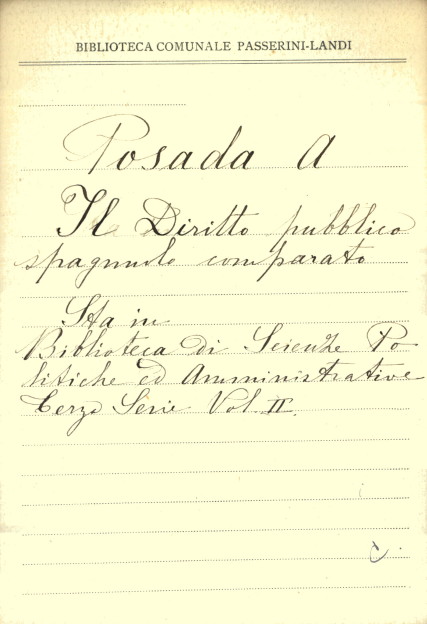 BIBLIOTECA COMUNALE PASSERINI-LANDI
Posada A
Il Diritto pubblico
spagnuolo comparato
Sta in
Biblioteca di Scienze Po
litiche ed Amministrative
Terza Serie Vol. II.